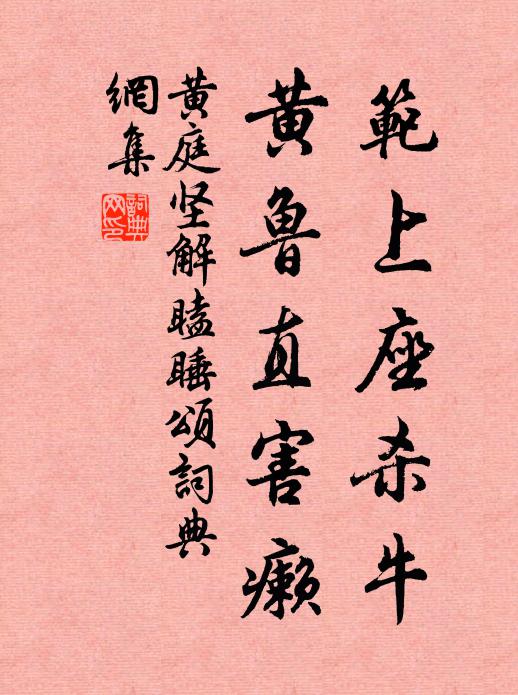 範上座杀牛
黄鲁直害癞
黄庭坚解瞌睡頌詞典
網集
詞典
网印